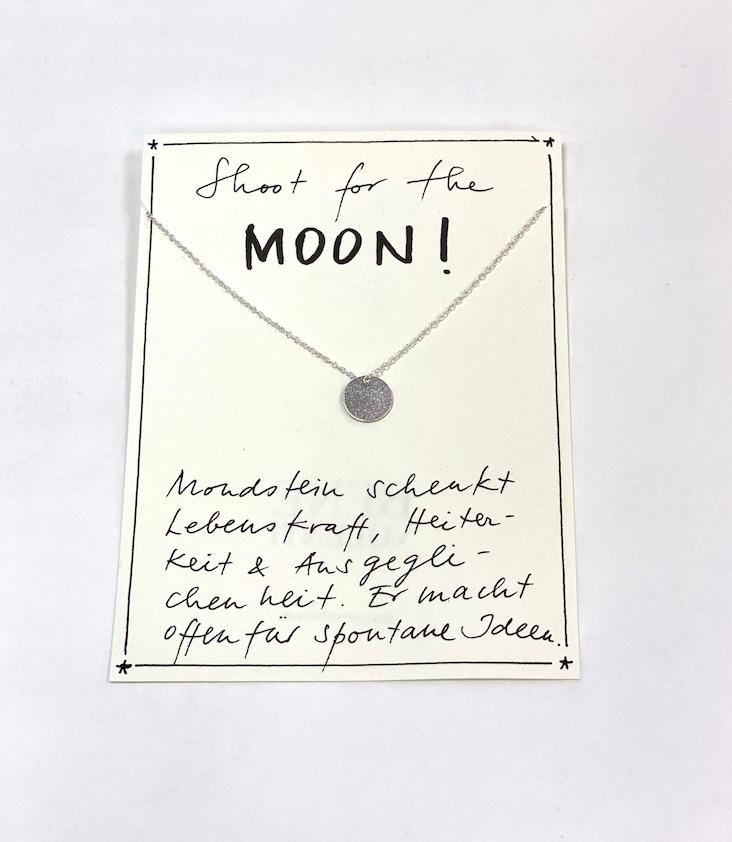 Shoot for the
MOON!
Mondstein schenkt
Lebenskraft, Heiter-
keit & Ausgegli-
chenheit. Er macht
offen für spontane Ideen.